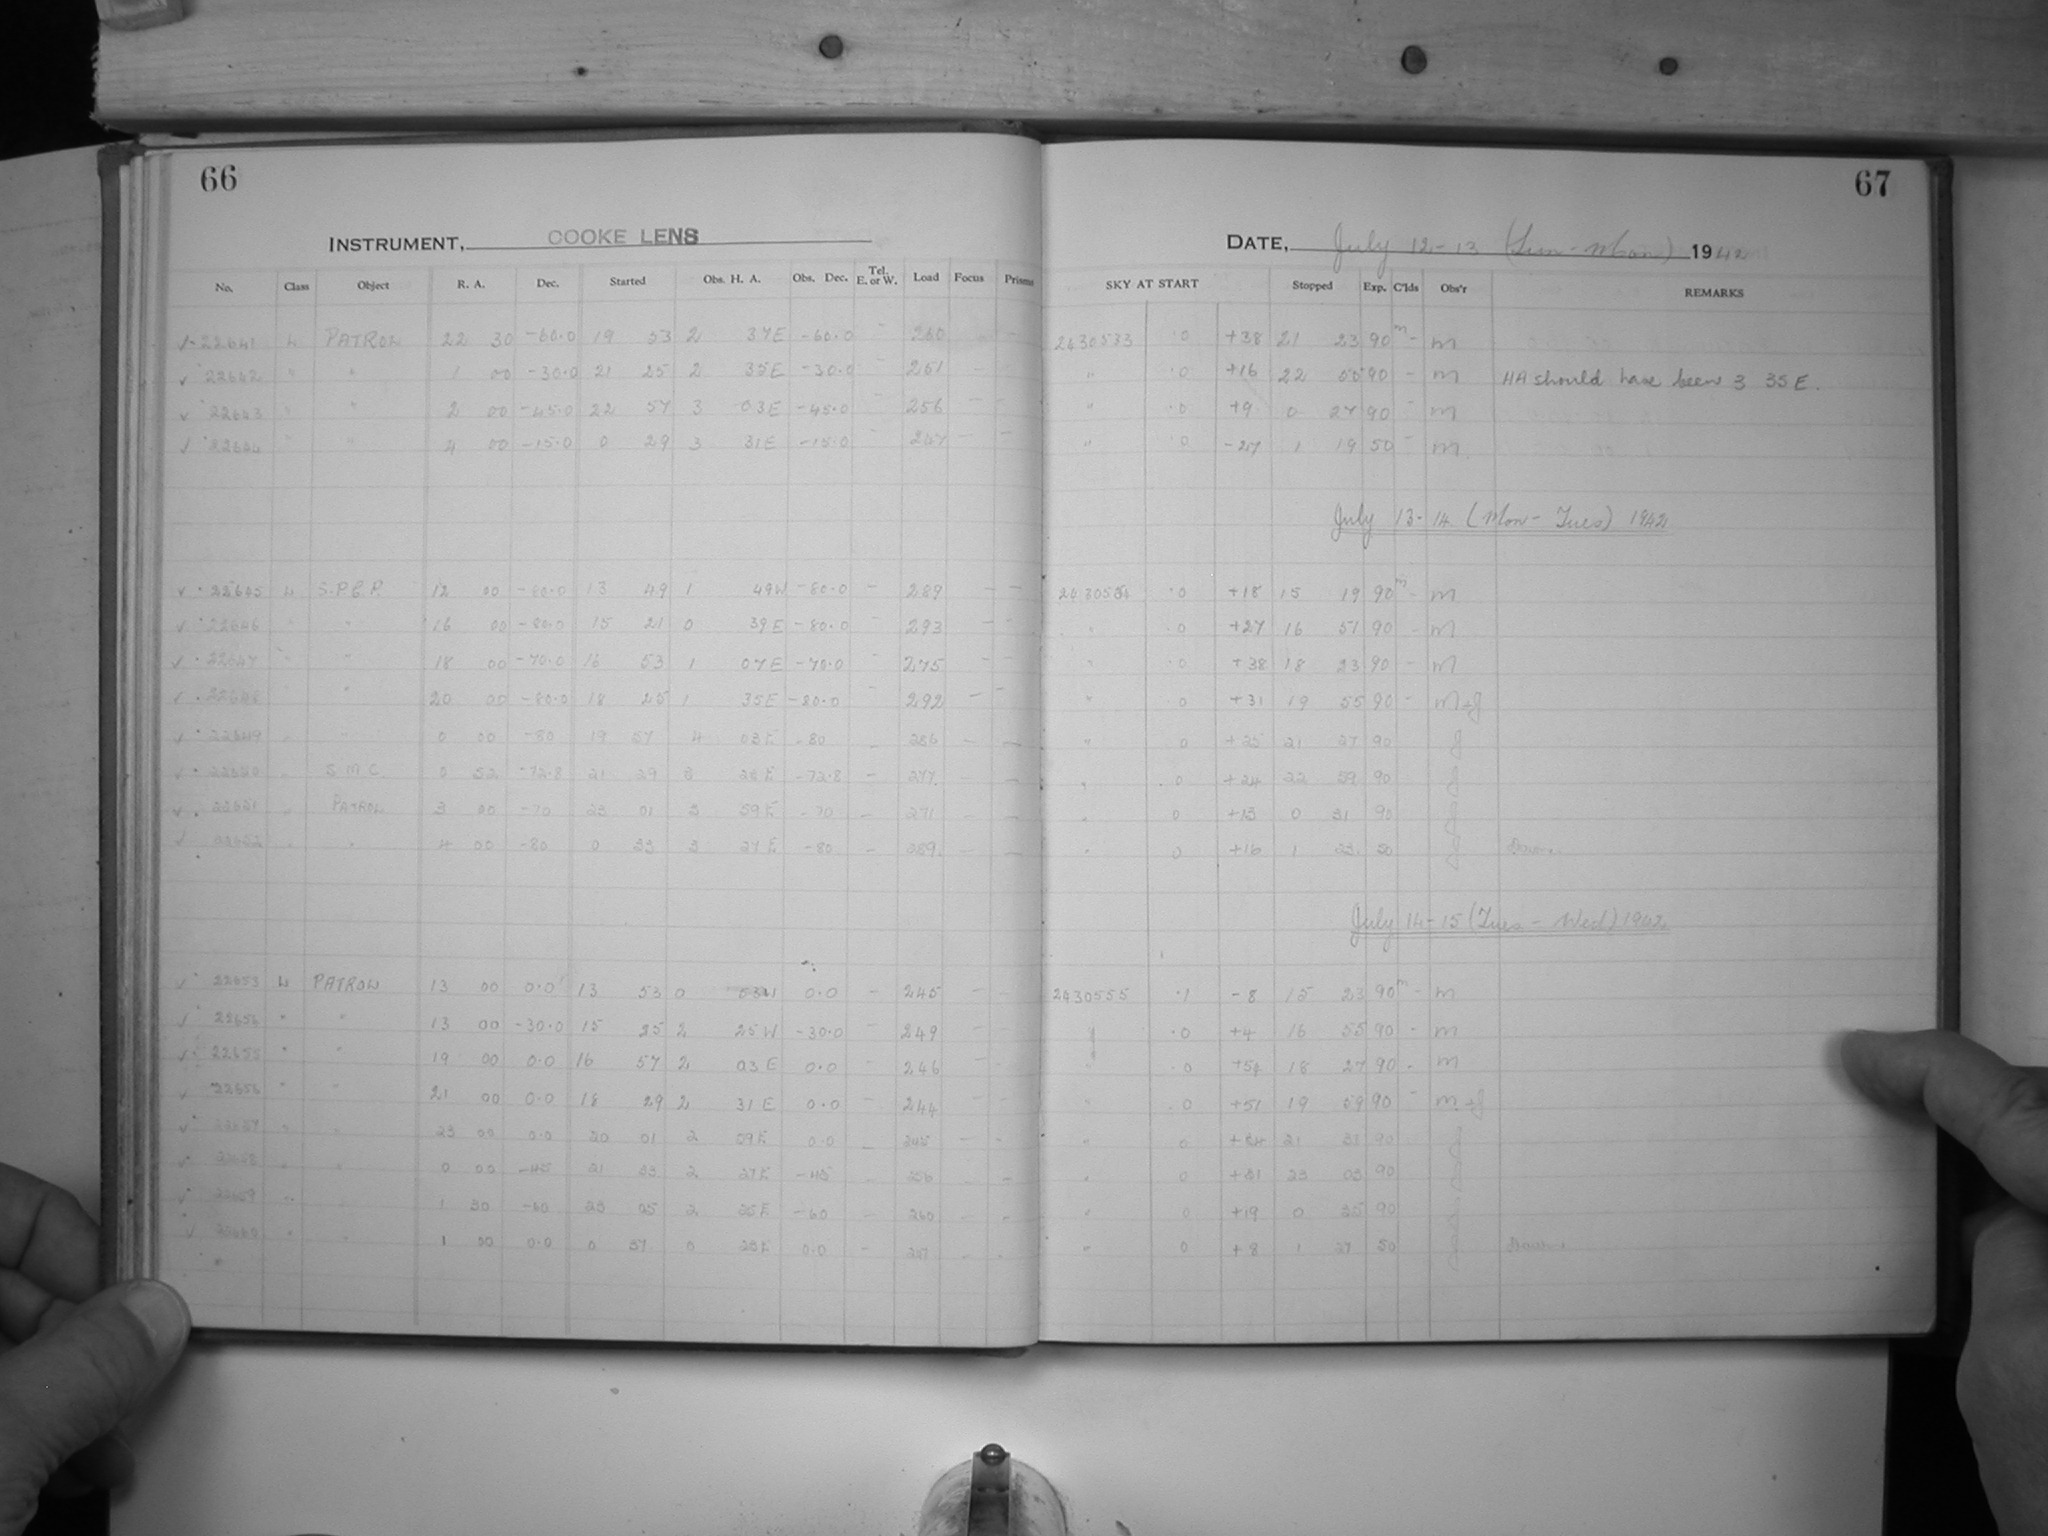 66
67
INSTRUMENT, COOKE LENS
DATE, July 12-13 (Sun-Mon) 1942
No. Class Object R. A. Dec. Started Obs. H. A. Obs. Dec. Tel. E. or W. Load Focus Prisms SKY AT START Stopped Exp. C'lds Obs'r REMARKS
22641 L PATROL 22 30 -60.0 19 53 2 37E -60.0 - 260 - - ·0 +38 21 23 90m - m
22642 " " 1 00 -30.0 21 25 2 35E -30.0 - 251 " ·0 +16 22 55 90 - m HA should have been 3 35 E.
22643 " " 2 00 -45.0 22 57 3 03E -45.0 - 256 - - " ·0 +9 0 27 90 - m
22644 " " 4 00 -15.0 0 29 3 31E -15.0 - 247 - - " ·0 1 19 50 - m
July 13-14 (Mon-Tues) 1942
22645 L 12 00 -80.0 13 49 1 49W -80.0 - 289 - - 2430554 ·0 +18 15 19 90m - m
22646 " " 16 00 -80.0 15 21 0 39E -80.0 - 293 - - " ·0 +27 16 51 90 - m
22647 " " 18 00 -70.0 16 53 1 07E -70.0 - 275 - - " ·0 +38 18 23 90 - m
22648 " 20 00 -80.0 18 25 1 35E -80.0 - 292 - - " ·0 +31 19 55 90 - m+J
22649 " " 0 00 -80 19 57 4 03E -80 - 286 - - " 0 +25 21 27 90 J
22650 " S.M.C. 0 52 -72.8 21 29 3 24E -72.8 - 277 - - " ·0 +24 22 59 90 J
22651 " PATROL 3 00 -70 23 01 3 59E -70 - 271 - - " 0 +13 0 31 90 J
22652 " " 4 00 -80 0 33 3 27E -80 - 289 - - " 0 +16 1 23 50 J Dawn.
July 14-15 (Tues-Wed) 1942
22653 L PATROL 13 00 0.0 13 53 0 53W 0.0 - 245 - - 2430555 ·1 -8 15 23 90m - m
22654 " " 13 00 -30.0 15 25 2 25W -30.0 - 249 ·0 +4 16 55 90 - m
22655 " " 19 00 0.0 16 57 2 03E 0.0 - 246 - - " ·0 18 27 90 - m
22656 " " 21 00 0.0 18 29 2 31E 0.0 - 244 - - " ·0 +51 19 59 90 - m+J
22657 " " 23 00 0.0 20 01 2 09E 0.0 - 245 - - " 0 21 31 90 J
22658 " " 0 00 -45 21 33 2 27E -45 - 256 - - " 0 23 03 90 J
22659 " " 1 30 -60 23 05 2 25E -60 - 260 - - " 0 +19 0 35 90 J
22660 " " 1 00 0.0 0 37 0 23E 0.0 - 247 - - " 0 +8 1 27 50 J Dawn.